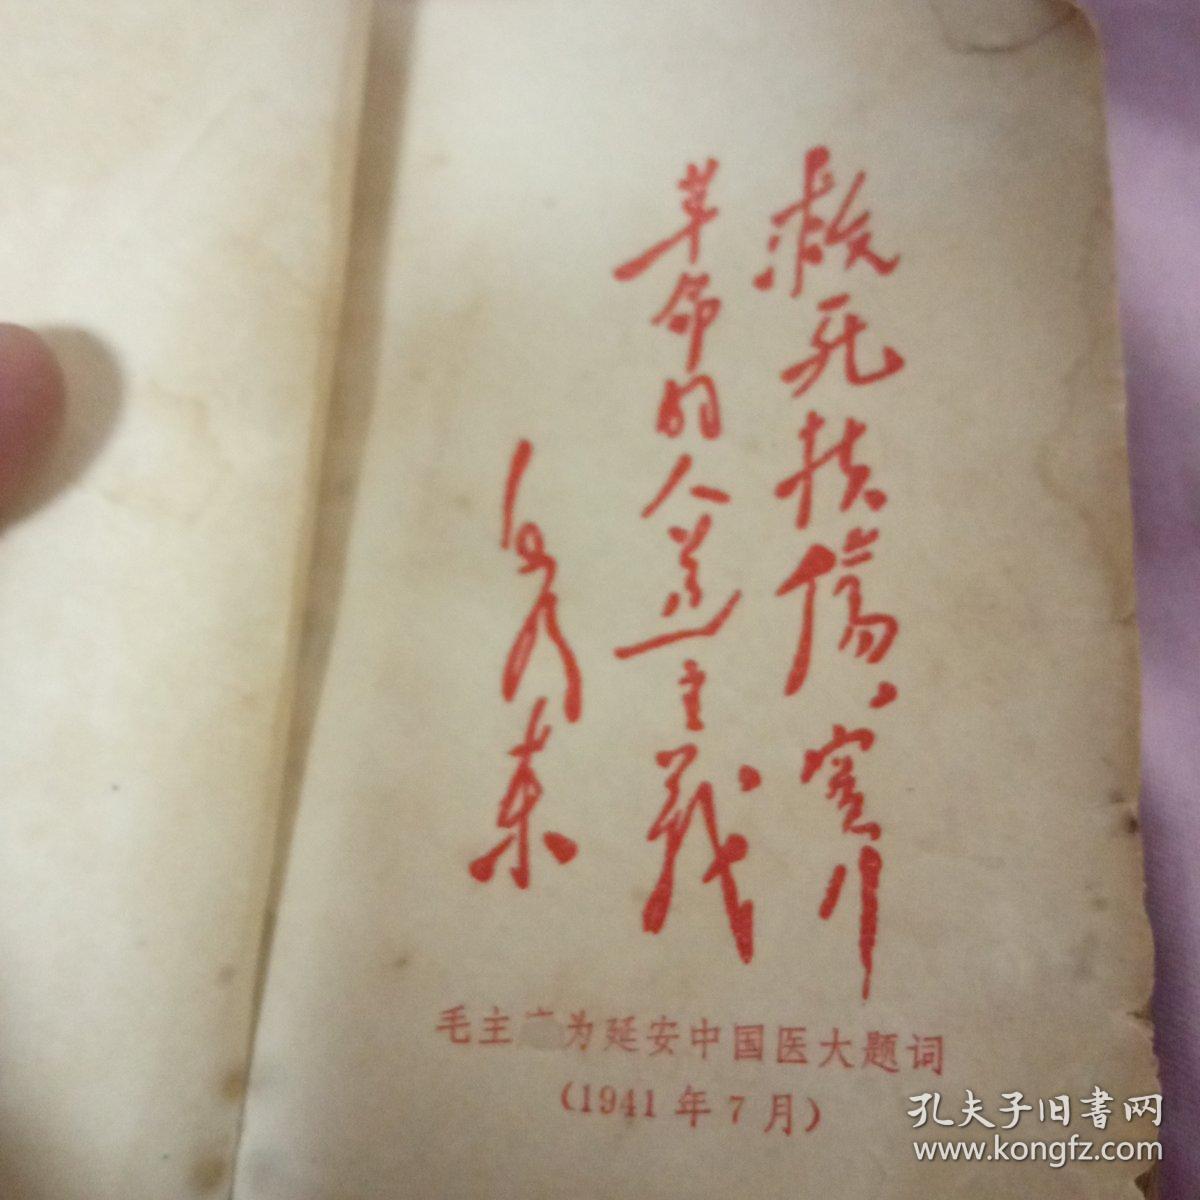 救死扶傷、實行
革命的人道主義
毛澤东
毛主 为延安中国医大题词
(1941年7月)
孔夫子旧書网
www.kongfz.com